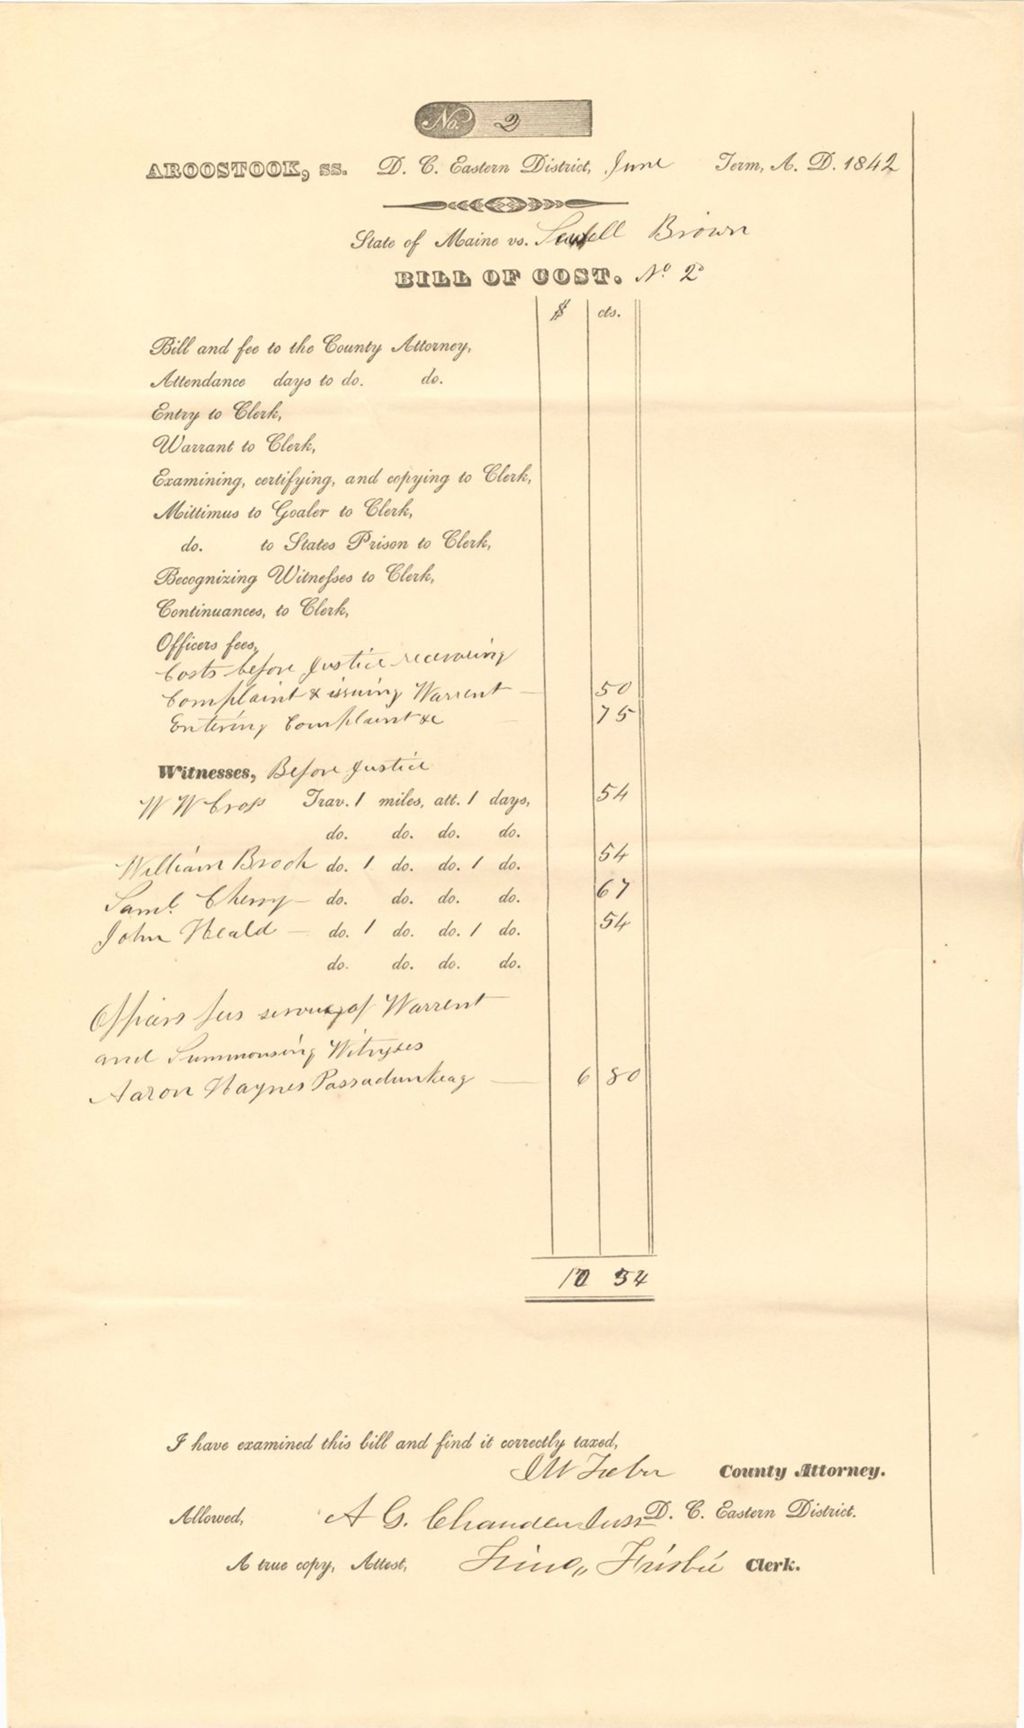 No. 2
AROOSTOOK, ss. D. C. Eastern District, June Term, A. D. 1842
State of Maine vs. Brown
BILL OF COST. No 2
$ cts.
Bill and fee to the County Attorney,
Attendance days to do. do.
Entry to Clerk,
Warrant to Clerk,
Examining, certifying, and copying to Clerk,
Mittimus to Goaler to Clerk,
do. to States Prison to Clerk,
Recognizing Witnesses to Clerk,
Continuances, to Clerk,
Officers fees,
Costs before Justice receiving
Complaint & issuing Warrent — 50
Entering Complaint &c — 75
Witnesses, Before Justice
W W Cross Trav. 1 miles, att. 1 days, 54
do. do. do. do.
William Brock do. 1 do. do. 1 do. 54
Saml. Cherry — do. do. do. do. 67
John Heald — do. 1 do. do. 1 do. 54
do. do. do. do.
Officers fees serving of Warrent
and Summonsing Witnesses
Aaron Haynes Passadumkeag — 6 80
10 34
I have examined this bill and find it correctly taxed,
County Attorney.
Allowed, A G. Chandler D. C. Eastern District.
A true copy, Attest, Frisbie Clerk.